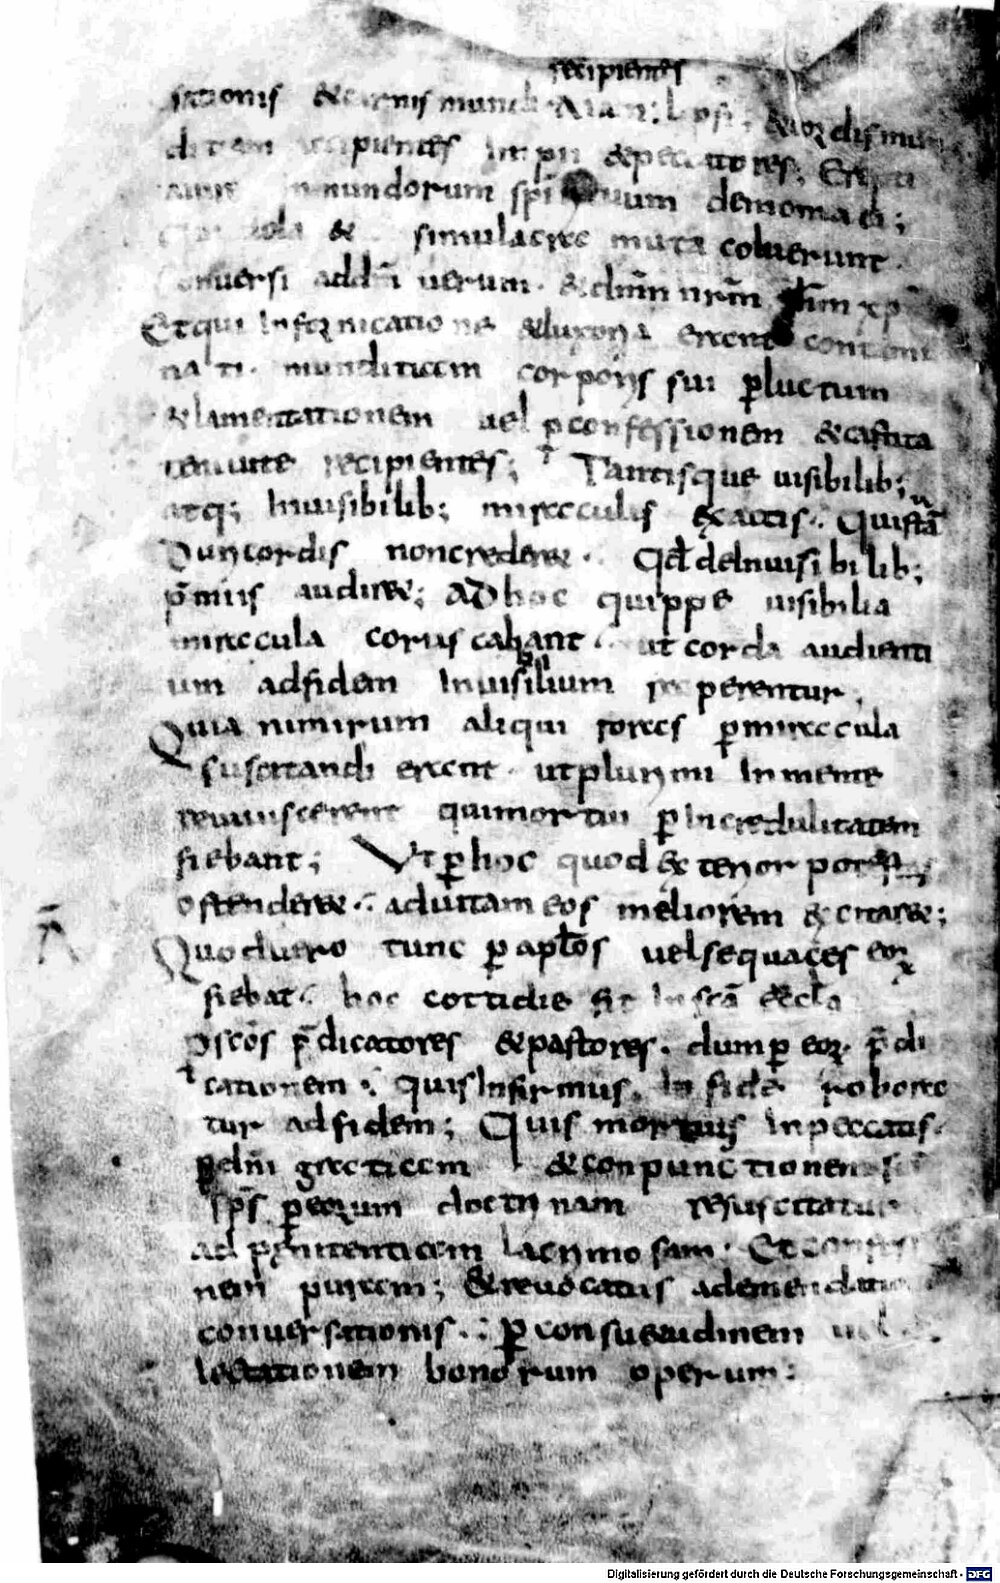 recipientes
& cordis mun
recipientes Impii & peccatores;
mundorum demoniaci;
& simulacra muta coluerunt.
Conuersi addm̄ uerum. & dnm̄ nrm̄ ihm̄ xp̄
Etqui Infornicatione &luxoria erant contami
nati. munditiam corporis sui p̲luctum
&lamentationem uel p̲confessionem &castita
recipientes; Tantisque uisibilib;
atq; Inuisibilib; miraculis exactis. Quistā
Duricordis noncreder&. Qd̄ deInuisibilib;
p̄miis audir&; Adhoc quippe uisibilia
miracula coruscabant. ut corda audienti
um adfidem Inuisibilium perentur;
Quia nimirum aliqui foras p̲miracula
suscitandi erant. utplurimi In mente
reuiuiscerent quimortui p̲Incredulitatem
fiebant; Ut p̲hoc quod exterior potest
ostender&. aduitam eos meliorem excitar&;
Quod uero tunc p̲ aplōs uel sequaces eoꝝ
fiebat. hoc cottidie fit In scā eccla
p̄dicatores &pastores. dum p̲ eoꝝ. p̄di
cationem. quis Infirmus. In fide robora
tur adfidem; Quis mortuus Inpeccatis.
p̲ dn̄i gratiam &conpunctionem
sps̄ p̲eorum doctrinam resuscitatur
ad penitentiam lacrimosam. Et confes
nem puram; &reuocatus ademendatio
conuersationis. p̲ consuetudinem uel
lectationem bonorum operum;
Digitalisierung gefördert durch die Deutsche Forschungsgemeinschaft - DFG